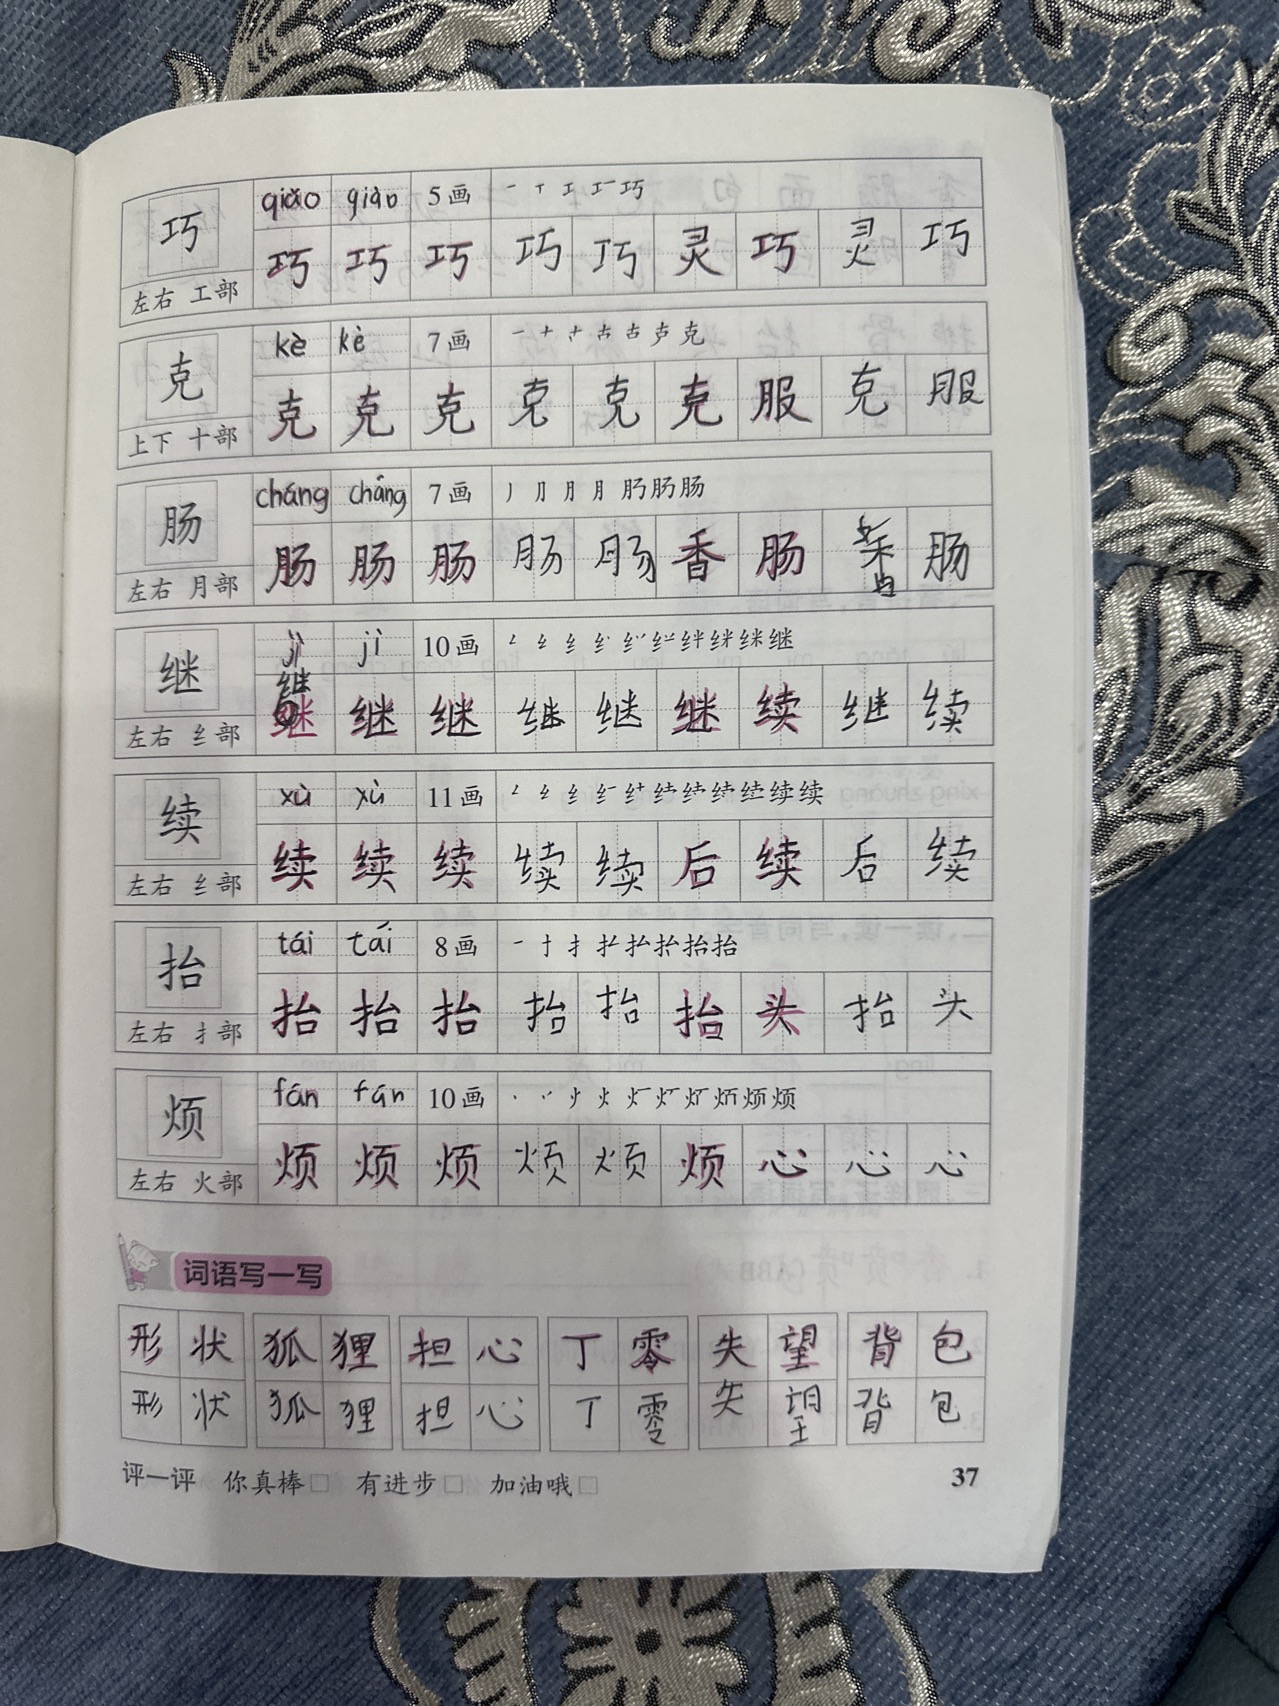 qiǎo giǎo 5画 一 丅 工 工一 巧
巧 巧 巧 巧 巧 巧 灵 巧 灵 巧
左右 工部
kè kè 7画 一 十 𠂇 古 古 声 克
克 克 克 克 克 克 克 服 克 服
上下 十部
cháng cháng 7画 丿 刀 月 月 肠 肠 肠
肠 肠 肠 肠 肠 肠 香 肠 香 肠
左右 月部
jì jì 10画
继 继 继 继 继 继 继 续 继 续
左右 纟部
xù xù 11画
续 续 续 续 续 续 后 续 后 续
左右 纟部
tái tái 8画 一 十 扌 抬 抬
抬 抬 抬 抬 抬 抬 抬 头 抬 头
左右 扌部
fán fán 10画 丶 火 烦 烦
烦 烦 烦 烦 烦 烦 烦 心 心 心
左右 火部
词语写一写
形 状 狐 狸 担 心 丁 零 失 望 背 包
形 状 狐 狸 担 心 丁 零 失 望 背 包
评一评 你真棒□ 有进步□ 加油哦□ 37